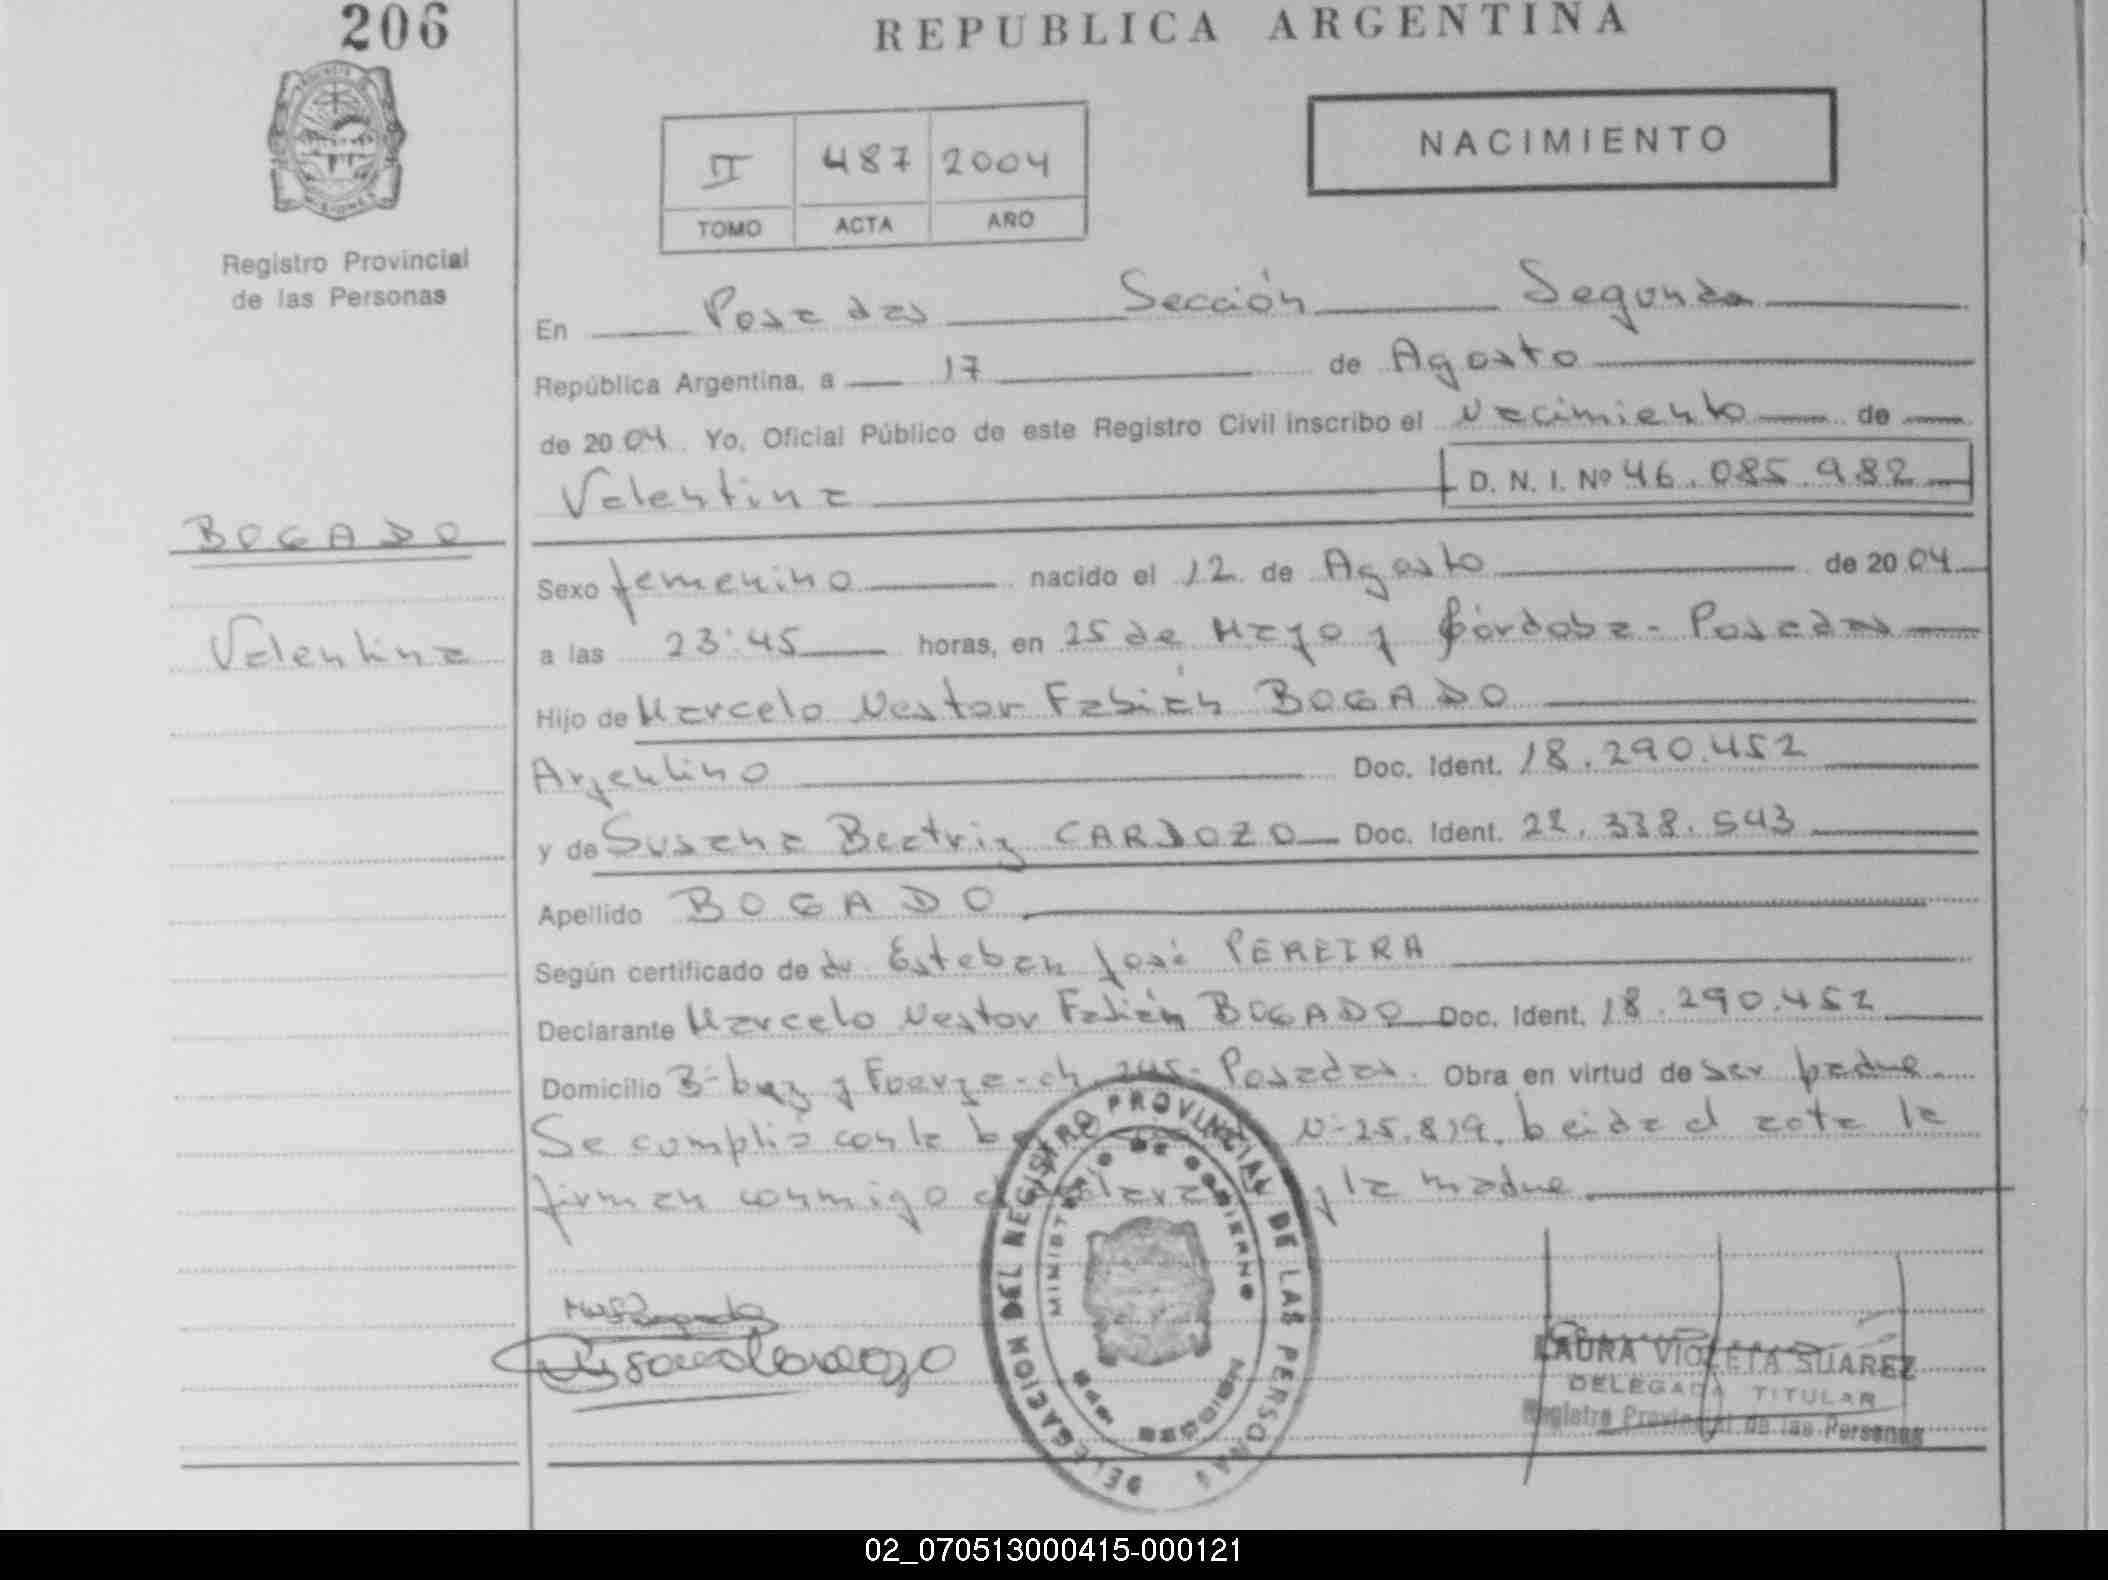 206
REPUBLICA ARGENTINA
NACIMIENTO
II 487 2004
TOMO ACTA AÑO
Registro Provincial
de las Personas
En Posadas Sección Segunda
República Argentina, a 17 de Agosto
de 2004 Yo, Oficial Público de este Registro Civil inscribo el Nacimiento de
Valentina D. N. I. Nº 46.085.982
BOGADO
Sexo femenino nacido el 12 de Agosto de 2004
Valentina
a las 23:45 horas, en 25 de Mayo y Córdoba - Posadas
Hijo de Marcelo Nestor Fabián BOGADO
Argentino Doc. Ident. 18.290.452
y de Susana Beatriz CARDOZO Doc. Ident. 22.338.543
Apellido BOGADO
Según certificado de dr Esteban José PEREIRA
Declarante Marcelo Nestor Fabián BOGADO Doc. Ident. 18.290.452
Domicilio y ch. 245 - Posadas. Obra en virtud de ser padre
Se cumplió con la Nº 25.819. Leida el acta la
firman conmigo el y la madre
DELEGACION DEL REGISTRO PROVINCIAL DE LAS PERSONAS
MINISTERIO DE GOBIERNO
MISIONES
LAURA VIOLETA SUAREZ
DELEGADA TITULAR
Registro Provincial de las Personas
02_070513000415-000121